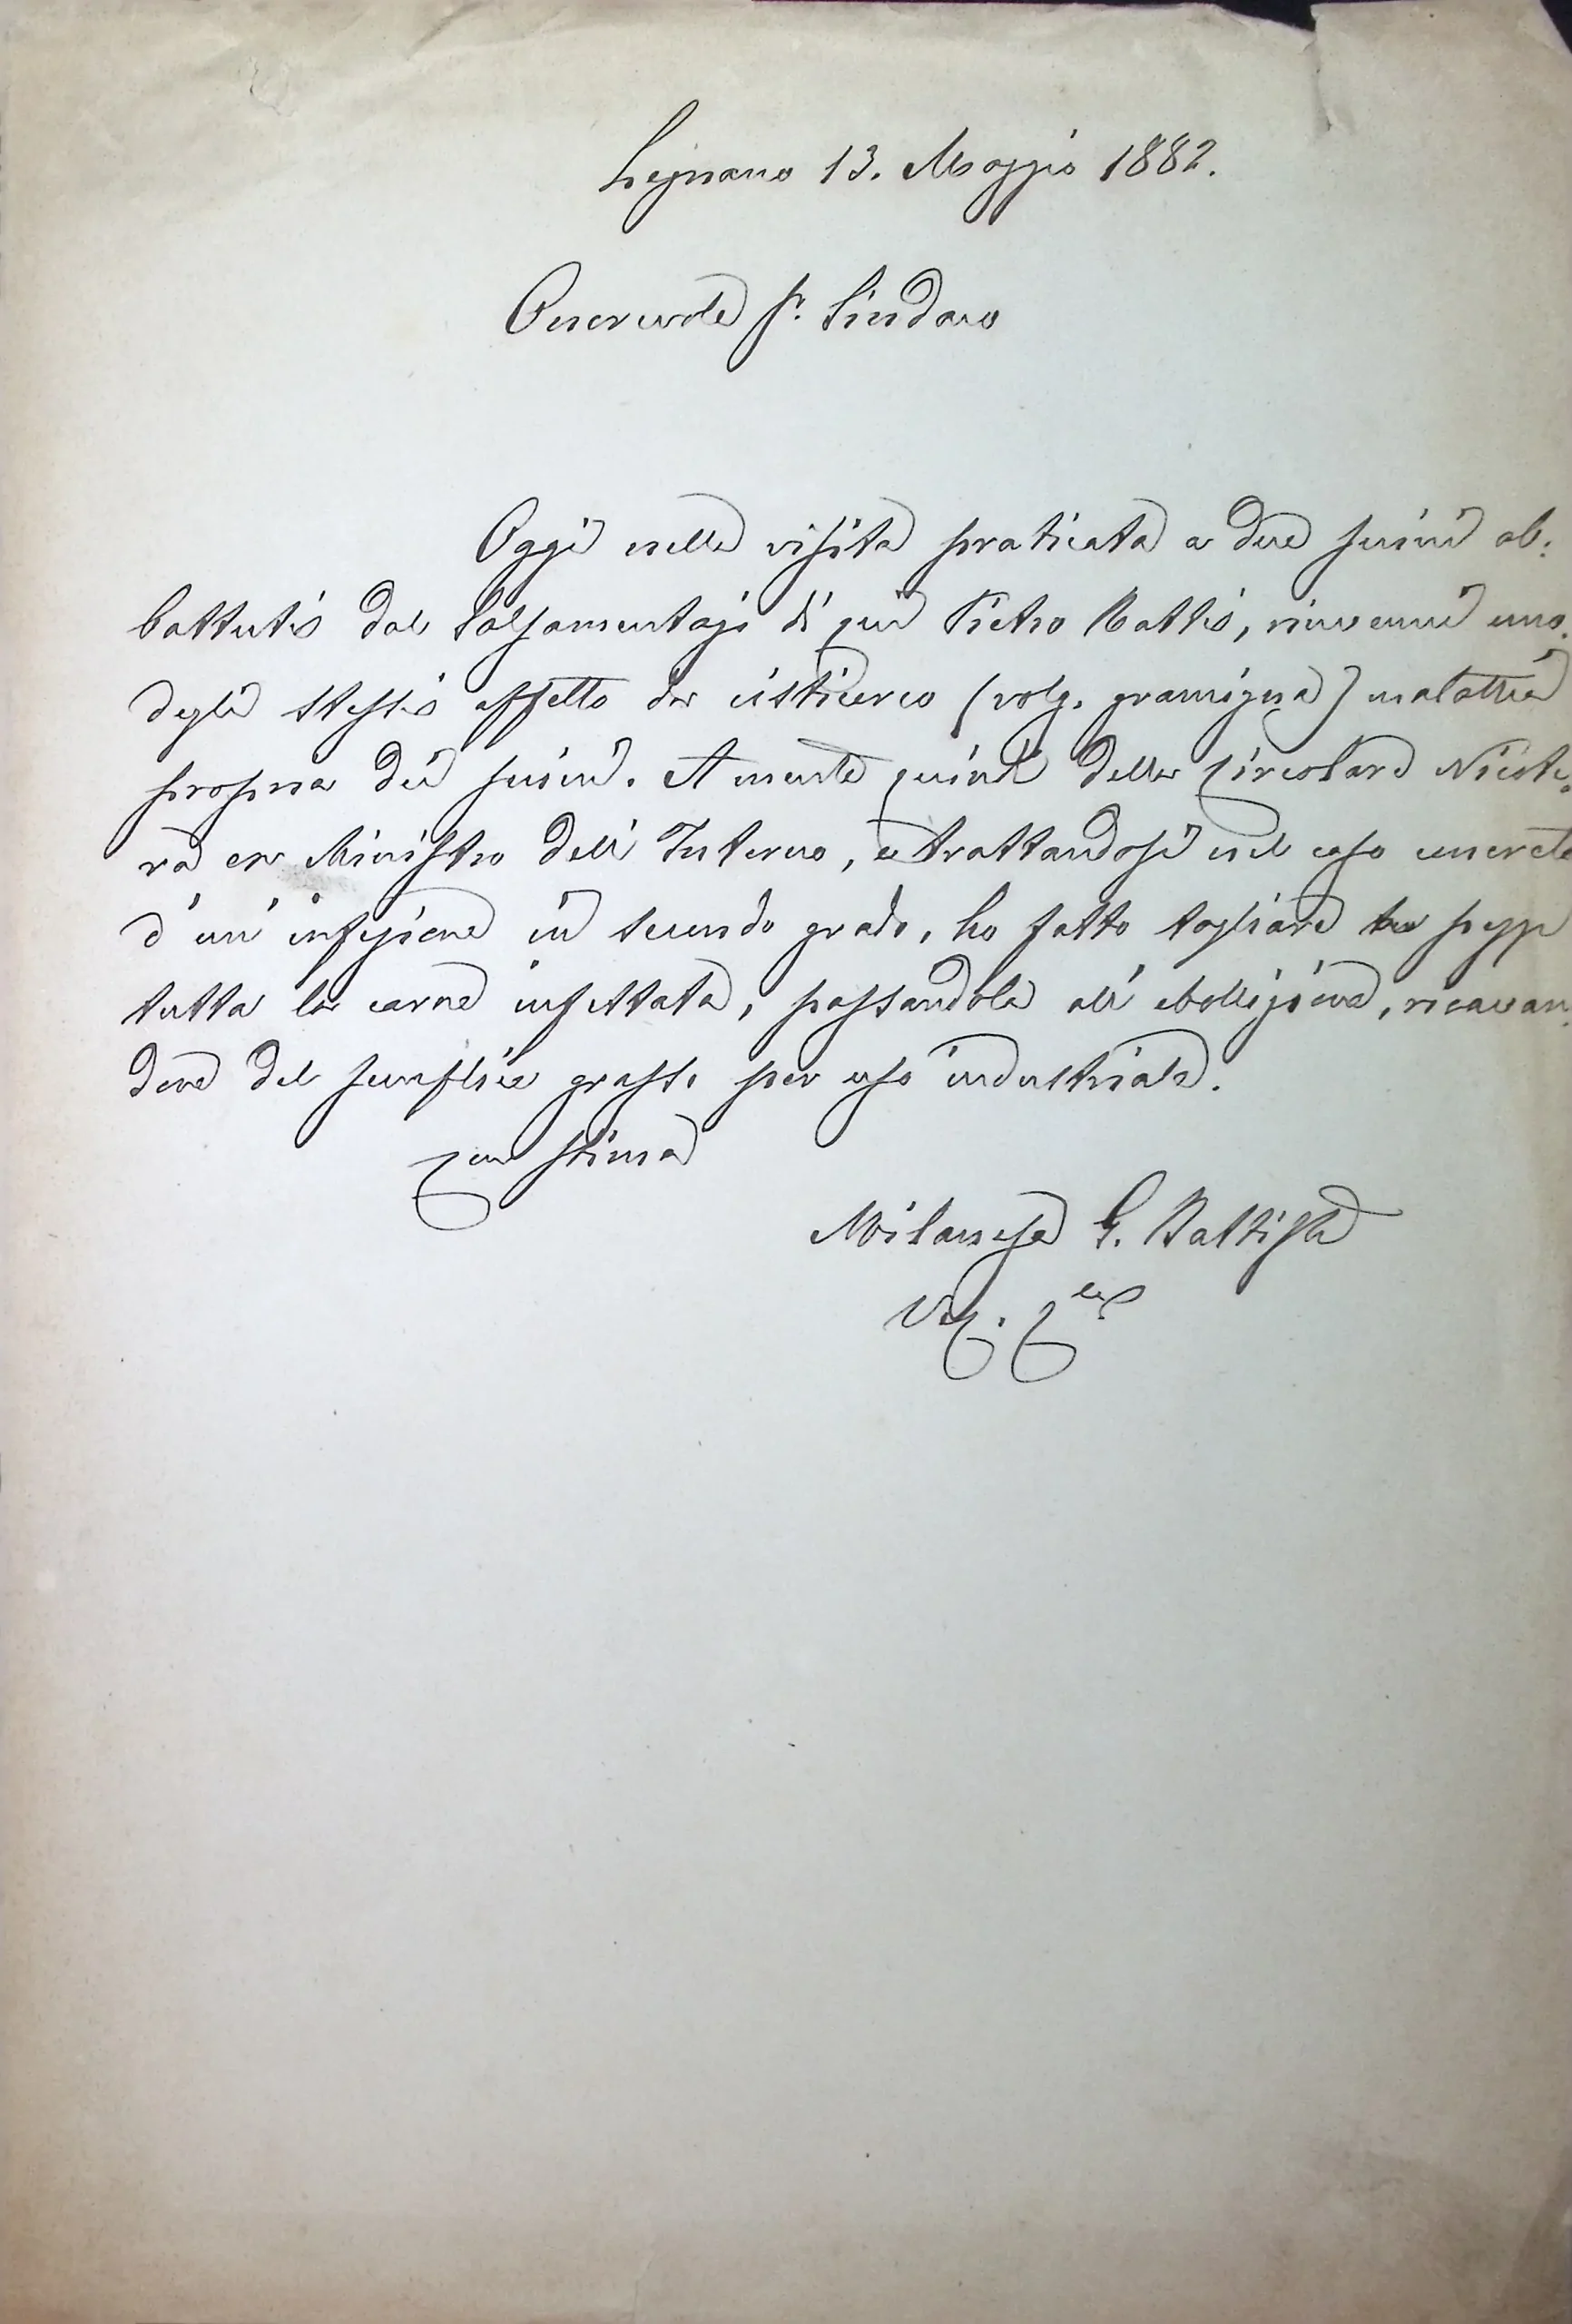 Legnano 13. Maggio 1882.
Onorevole Sr. Sindaco
Oggi nella visita praticata a due suini ab:
battuti dal Salsamentajo di qui Pietro Ratti, rinvenni uno
degli stessi affetto da cisticerco (volg. gramigna) malattia
propria dei suini. A mente quindi della Circolare Nicote:
ra ex Ministro dell'Interno, e trattandosi nel caso concreto
d'un'infezione in secondo grado, ho fatto tagliare in pezzi
tutta la carne infettata, passandola all'ebollizione, ricavan:
done del semplice grasso per uso industriale.
Con stima
Milanese G. Battista
Vet.